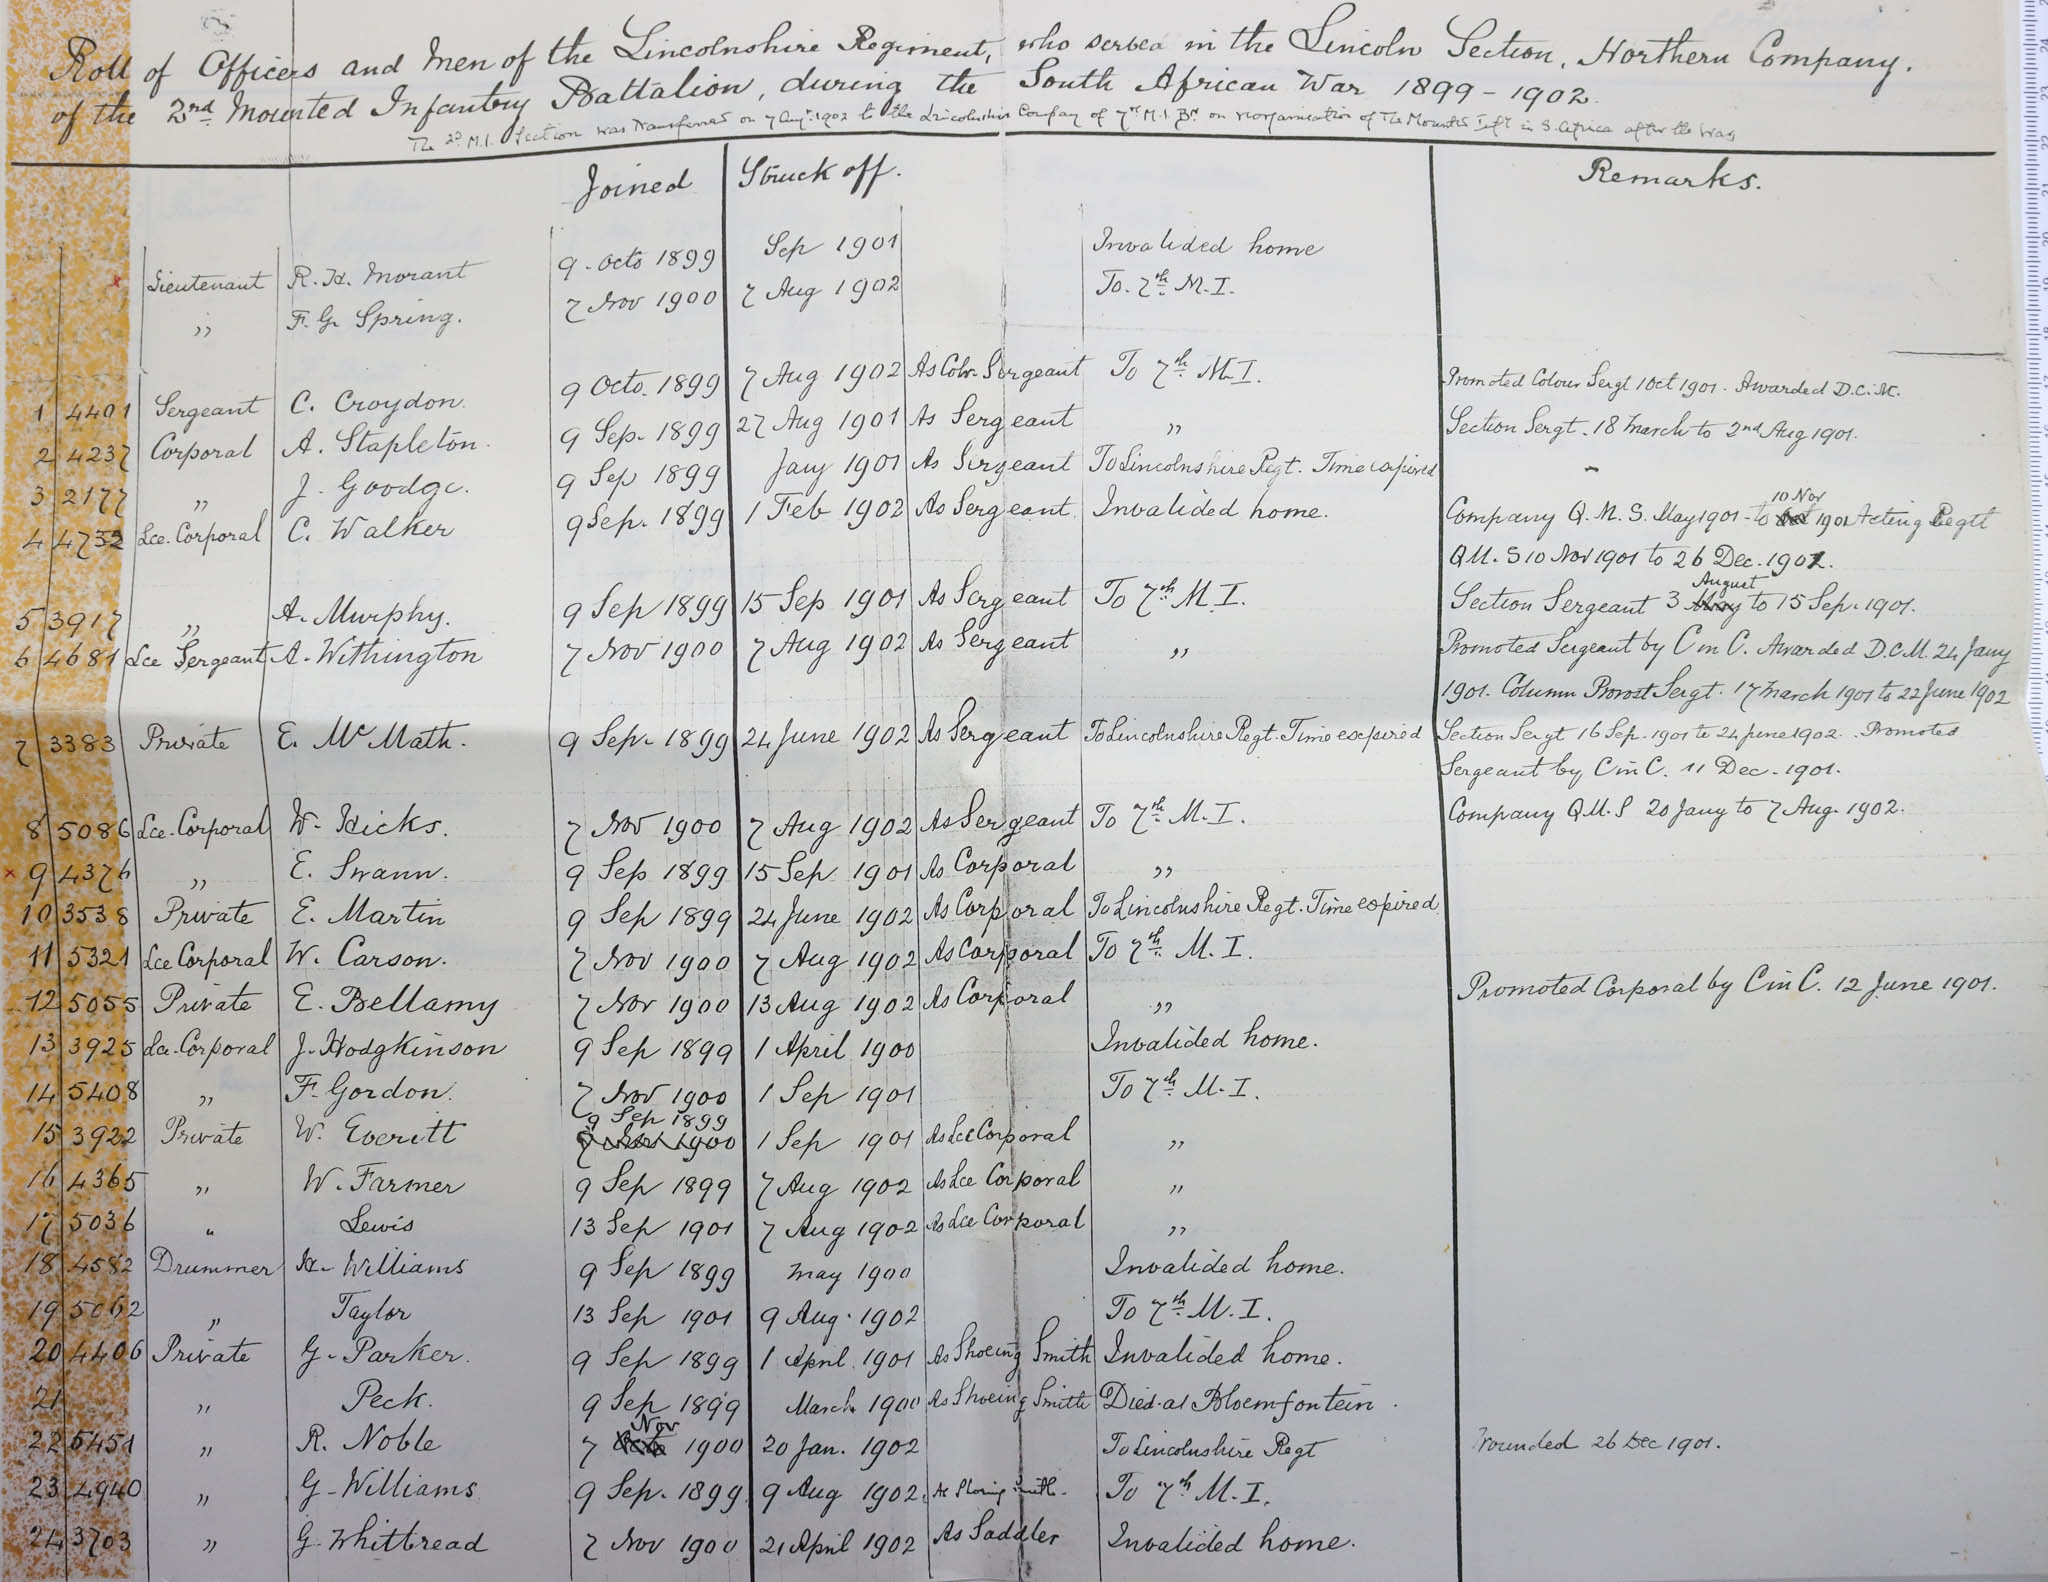 Roll of Officers and Men of the Lincolnshire Regiment, who served in the Lincoln Section, Northern Company,
of the 2nd Mounted Infantry Battalion, during the South African War 1899-1902.
The 2nd M.I. Section was transferred on 7 Augt 1902 to the Lincolnshire Company of 7th M.I. Bn on reorganisation of the Mounted Infy in S. Africa after the war
Joined Struck off. Remarks.
Lieutenant R. H. Morant 9. Octo 1899 Sep 1901 Invalided home
" F. G. Spring. 7 Nov 1900 7 Aug 1902 To. 7th M.I.
1 4401 Sergeant C. Croydon. 9 Octo. 1899 7 Aug 1902 As Colr. Sergeant To 7th M.I. Promoted Colour Sergt 1 Oct 1901. Awarded D.C.M.
2 4237 Corporal A. Stapleton. 9 Sep. 1899 27 Aug 1901 As Sergeant " Section Sergt. 18 March to 2nd Aug 1901.
3 2177 " J. Goodge. 9 Sep 1899 Jany 1901 As Sergeant To Lincolnshire Regt. Time expired -
4 4752 Lce. Corporal C. Walker 9 Sep. 1899 1 Feb 1902 As Sergeant Invalided home. Company Q.M.S. May 1901 - to 10 Nov 1901 Acting Regtl
QM.S 10 Nov 1901 to 26 Dec. 1901.
5 3917 " A. Murphy. 9 Sep 1899 15 Sep 1901 As Sergeant To 7th M.I. Section Sergeant 3 May August to 15 Sep. 1901.
6 4681 Lce Sergeant A. Withington 7 Nov 1900 7 Aug 1902 As Sergeant " Promoted Sergeant by C in C. Awarded D.C.M. 24 Jany
1901. Column Provost Sergt. 17 March 1901 to 22 June 1902
7 3383 Private E. McMath. 9 Sep. 1899 24 June 1902 As Sergeant To Lincolnshire Regt. Time expired Section Sergt 16 Sep. 1901 to 24 June 1902. Promoted
Sergeant by C in C. 11 Dec. 1901.
8 5086 Lce. Corporal W. Hicks. 7 Nov 1900 7 Aug 1902 As Sergeant To 7th M.I. Company QM.S 20 Jany to 7 Aug. 1902.
9 4376 " E. Swann. 9 Sep 1899 15 Sep 1901 As Corporal "
10 3538 Private E. Martin 9 Sep 1899 24 June 1902 As Corporal To Lincolnshire Regt. Time expired
11 5321 Lce Corporal W. Carson. 7 Nov 1900 7 Aug 1902 As Corporal To 7th M.I.
12 5055 Private E. Bellamy 7 Nov 1900 13 Aug 1902 As Corporal " Promoted Corporal by C in C. 12 June 1901.
13 3925 Lce. Corporal J. Hodgkinson 9 Sep 1899 1 April 1900 Invalided home.
14 5408 " F. Gordon. 7 Nov 1900 1 Sep 1901 To 7th M.I.
15 3922 Private W. Everitt 9 Sep 1899 7 Nov 1900 1 Sep 1901 As Lce Corporal "
16 4365 " W. Farmer 9 Sep 1899 7 Aug 1902 As Lce Corporal "
17 5036 " Lewis 13 Sep 1901 7 Aug 1902 As Lce Corporal "
18 4582 Drummer H. Williams 9 Sep 1899 May 1900 Invalided home.
19 5062 " Taylor 13 Sep 1901 9 Aug. 1902 To 7th M.I.
20 4406 Private G. Parker. 9 Sep 1899 1 April 1901 As Shoeing Smith Invalided home.
21 " Peck. 9 Sep 1899 March 1900 As Shoeing Smith Died at Bloemfontein.
22 5451 " R. Noble 7 Octo Nov 1900 20 Jan. 1902 To Lincolnshire Regt Wounded 26 Dec 1901.
23 4940 " G. Williams 9 Sep. 1899 9 Aug 1902. As Shoeing Smith. To 7th M.I.
24 3703 " G. Whitbread 7 Nov 1900 21 April 1902 As Saddler Invalided home.